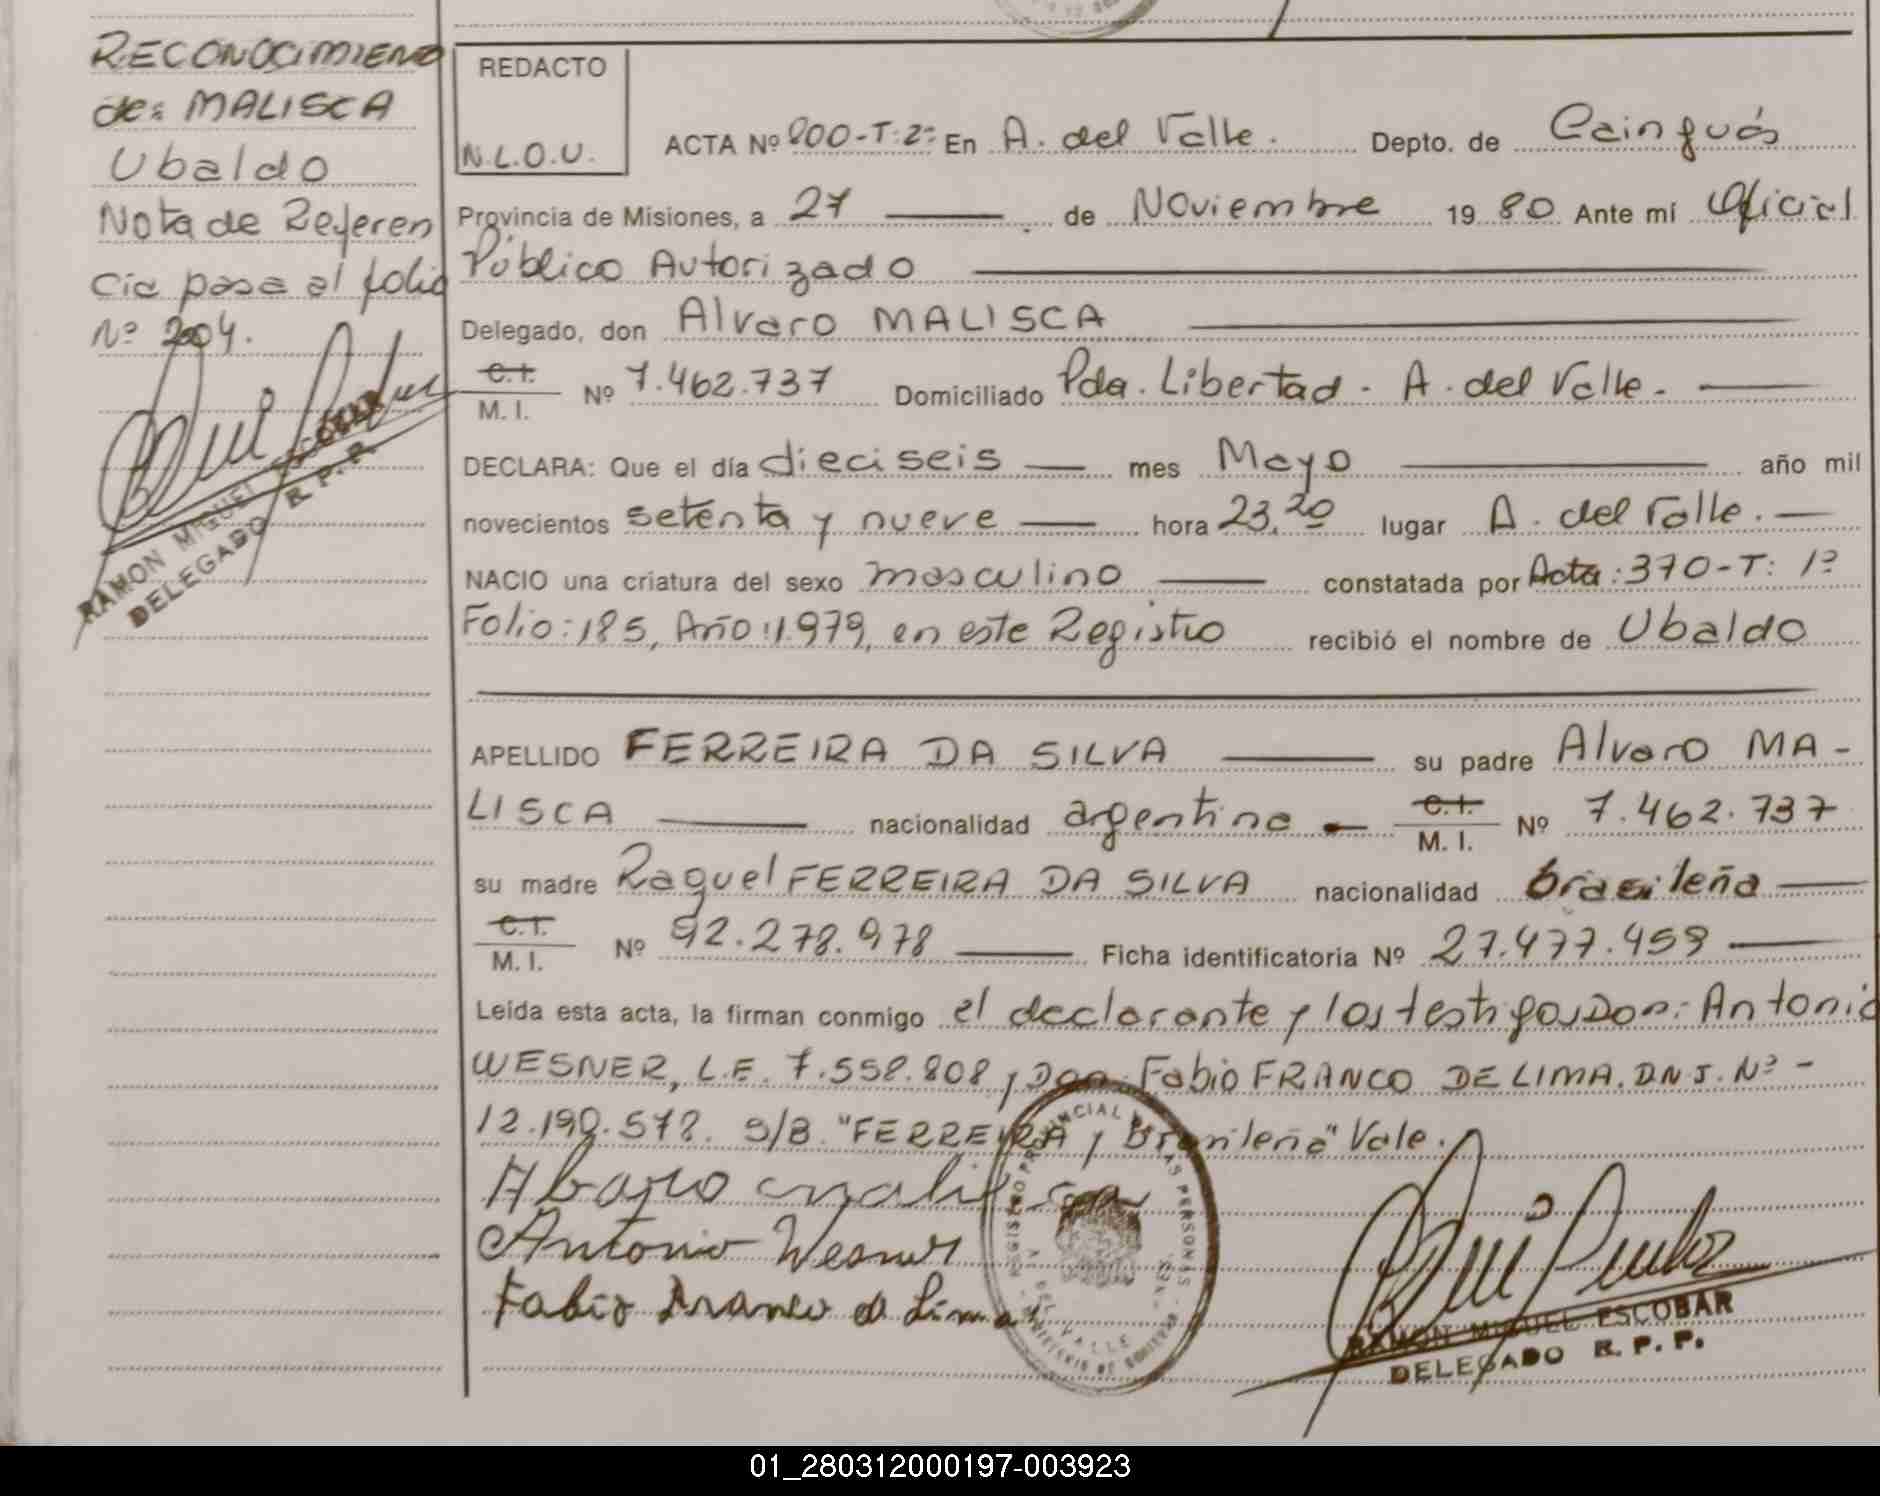 RECONOCIMIENO
de: MALISCA
Ubaldo
Nota de Referen
cia pasa al folio
Nº 204.
RAMON MIGUEL ESCOBAR
DELEGADO R. P. P.
REDACTO
N.L.O.U.
ACTA Nº 800-T:2º En A. del Valle. Depto. de Cainguás
Provincia de Misiones, a 27 de Noviembre 19 80 Ante mí Oficial
Público Autorizado
Delegado, don Alvaro MALISCA
C.I.
M. I. Nº 7.462.737 Domiciliado Pda. Libertad - A. del Valle.
DECLARA: Que el día dieciseis mes Mayo año mil
novecientos setenta y nueve hora 23,20 lugar A. del Valle.
NACIO una criatura del sexo masculino constatada por Acta: 370-T: 1º
Folio: 185, Año: 1.979, en este Registro recibió el nombre de Ubaldo
APELLIDO FERREIRA DA SILVA su padre Alvaro MA-
LISCA nacionalidad argentina C.I.
M. I. Nº 7.462.737
su madre Raquel FERREIRA DA SILVA nacionalidad brasileña
C.I.
M. I. Nº 92.278.978 Ficha identificatoria Nº 27.477.459
Leída esta acta, la firman conmigo el declarante y los testigos Don: Antonio
WESNER, L.E. 7.558.808 y Don Fabio FRANCO DE LIMA. D N I. Nº -
12.190.578. S/B. "FERREIRA y brasileña" Vale.
Albaro malisca
Antonio Wesner
Fabio Franco d Lima
REGISTRO PROVINCIAL DE LAS PERSONAS
A. DEL VALLE
MINISTERIO DE GOBIERNO
RAMON MIGUEL ESCOBAR
DELEGADO R. P. P.
01_280312000197-003923